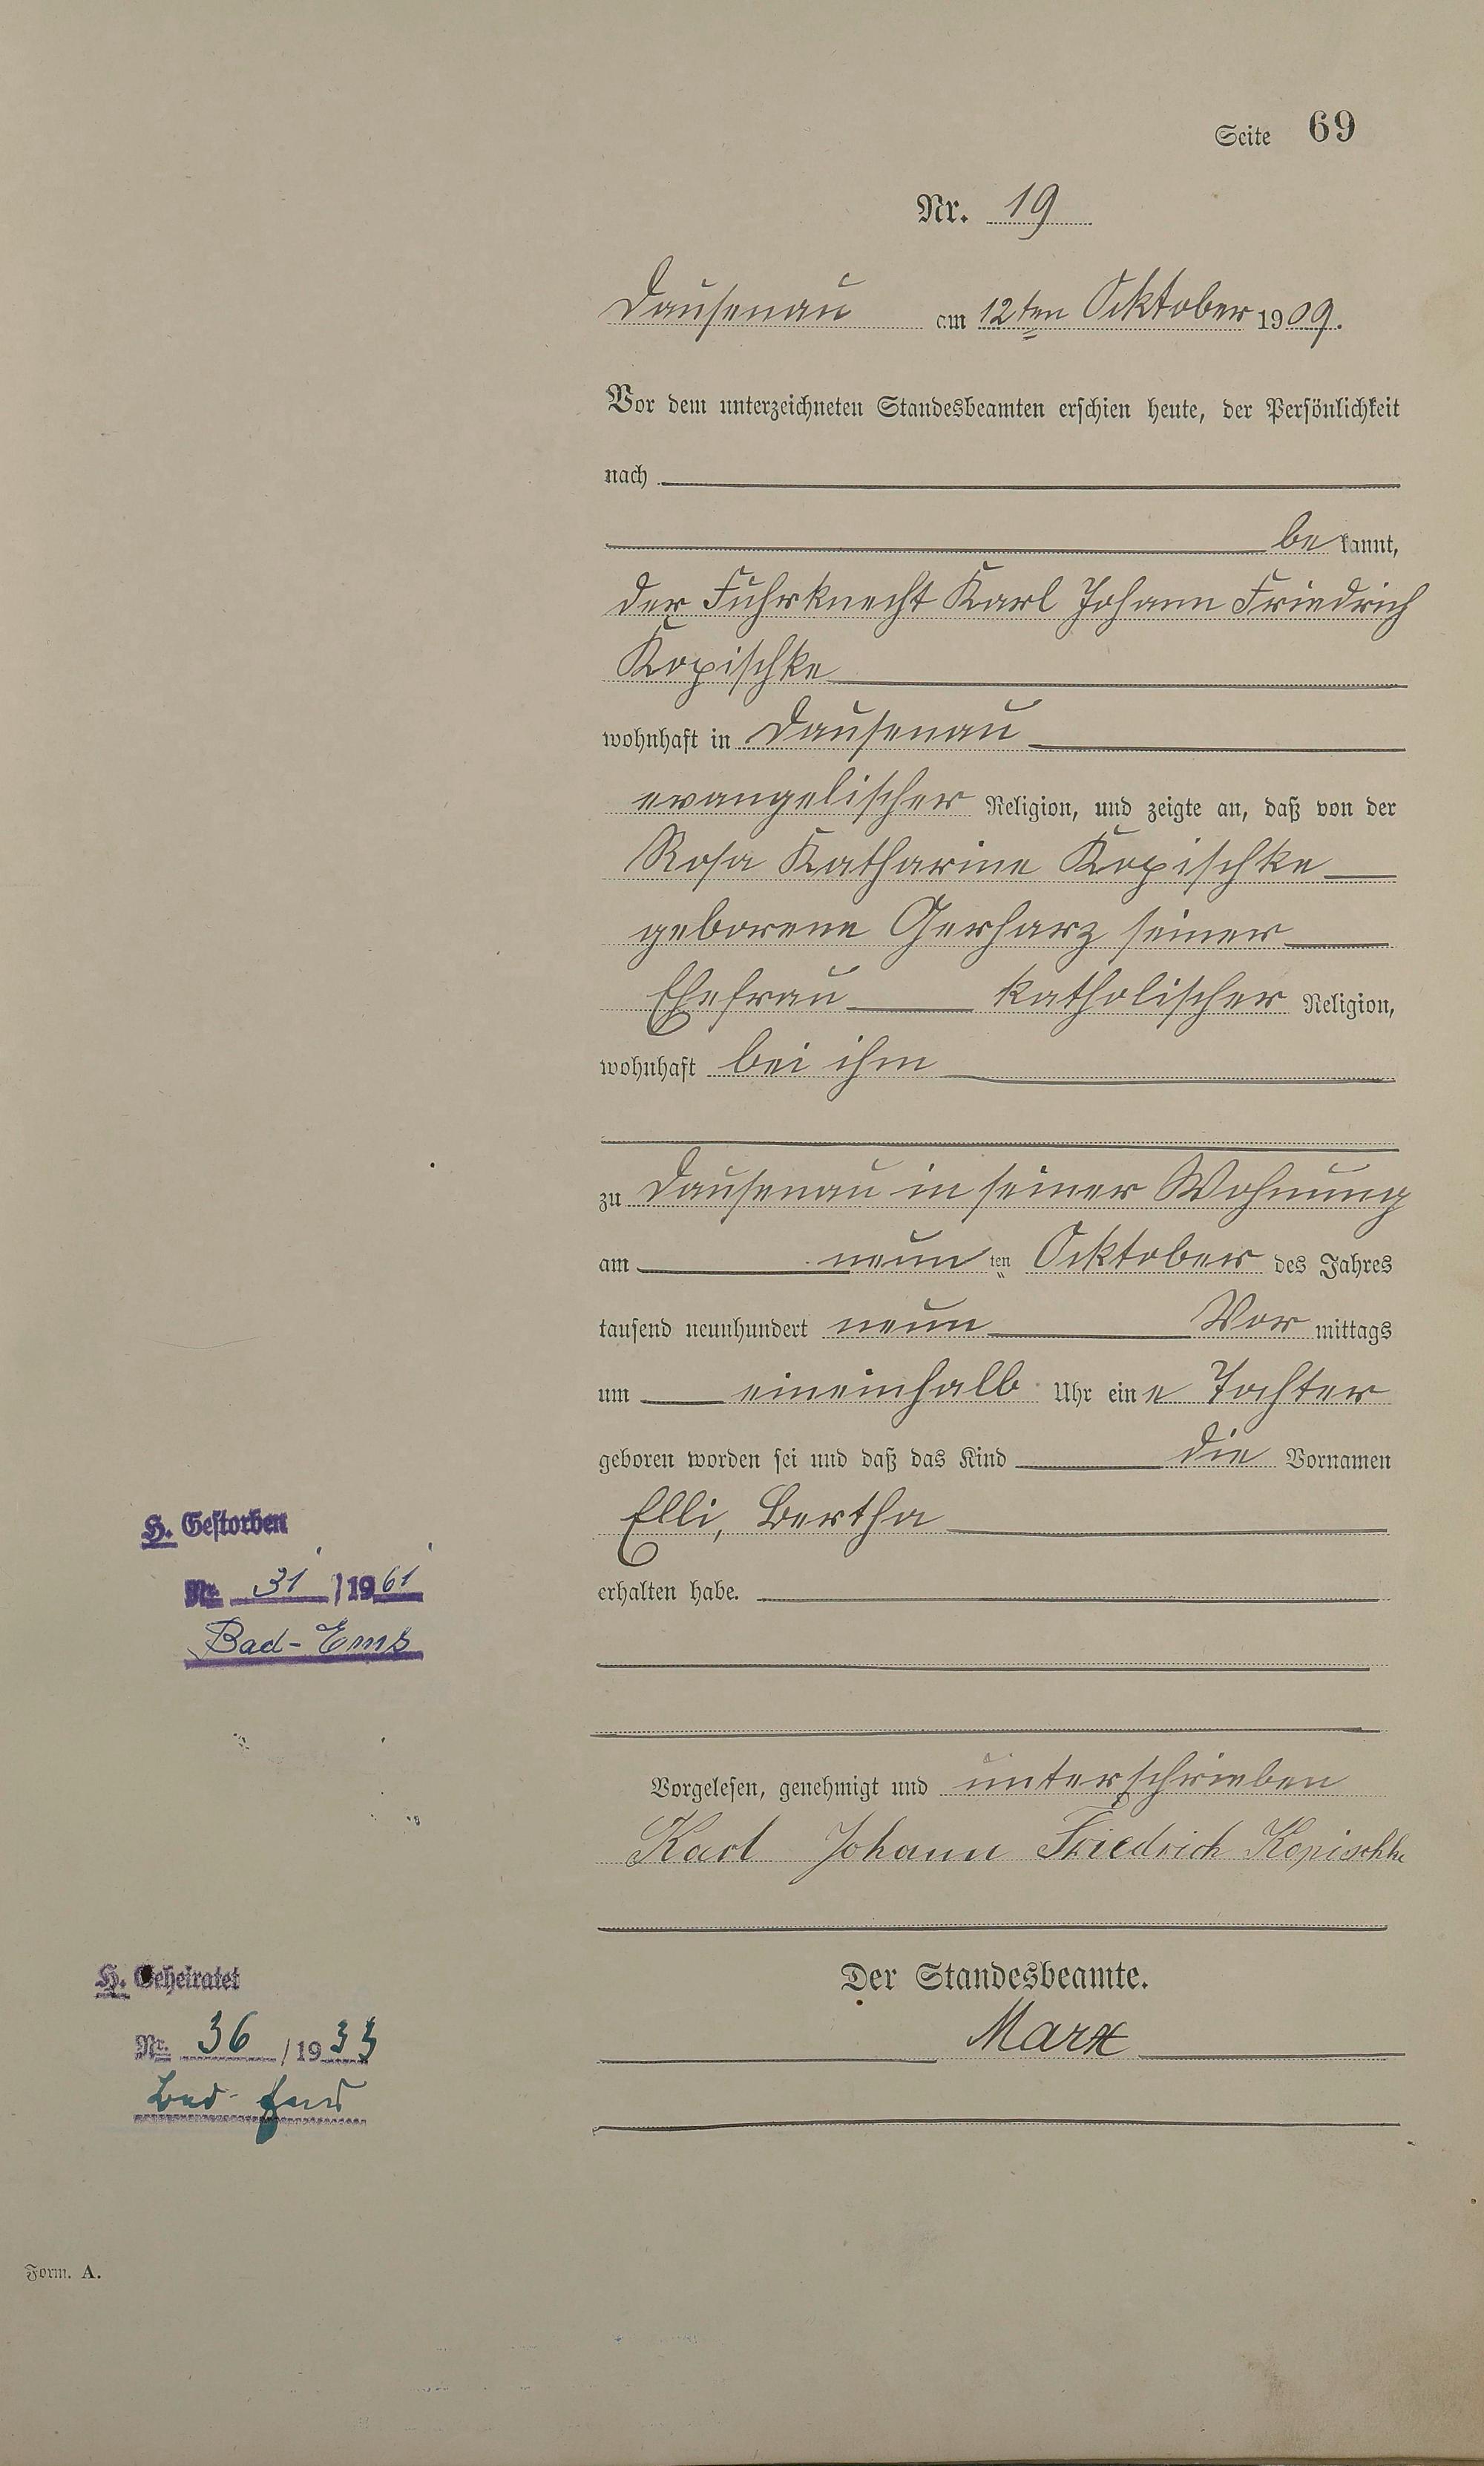 Seite 69
Nr. 19
Dausenau am 12ten Ocktober 1909.
Vor dem unterzeichneten Standesbeamten erschien heute, der Persönlichkeit
nach
be kannt,
der Fuhrknecht Karl Johann Friedrich
Kopischke
wohnhaft in Dausenau
evangelischer Religion, und zeigte an, daß von der
Rosa Katharine Kopischke
geborene Gerharz seiner
Ehefrau katholischer Religion,
wohnhaft bei ihm
zu Dausenau in seiner Wohnung
am neun ten Ocktober des Jahres
tausend neunhundert neun Vor mittags
um eineinhalb Uhr ein e Tochter
geboren worden sei und daß das Kind die Vornamen
Elli, Bertha
erhalten habe.
H. Gestorben
Nr. 31 / 1961
Bad-Ems
Vorgelesen, genehmigt und unterschrieben
Karl Johann Friedrich Kopischke
Der Standesbeamte.
Marx
H. Geheiratet
Nr. 36 / 1933
Bad-Ems
Form. A.